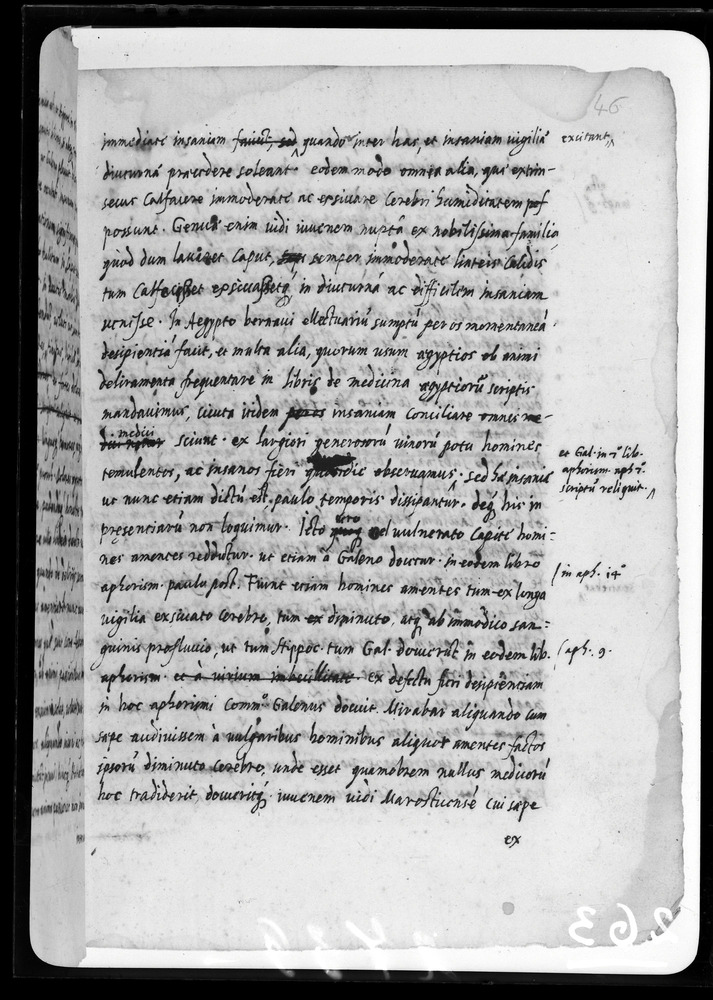 46
immediate insaniam faciét, sed quando inter has, et insaniam vigiliae excitant,
diuturnā praecedere soleant. eodem modo omnia alia, quae extrin-
secus Calfacere immoderate ac exsiccare Cerebri humiditatem pos
possunt. Genuā enim vidi iuvenem nuptā ex nobilissima familia
quod dum lavaret Caput, semper immoderate liateis Calidis
tum Calfecisset exsiccassetq́ in diuturnā ac difficilem insaniam
venisse. In Aegypto bernavi ellectuariū sumptū per os momentaneā
desipientiā facit, et multa alia, quorum usum aegyptios ob animi
deliramenta frequentare in libris de medicina aegyptiorū scriptis
mandavimus, cicuta itidem insaniam Conciliare omnes
medici sciunt. ex largiori generosorū vinorū potu homines
temulentos, ac insanos fieri quotidie observamus. sed hae insaniae
et Gal. in 2° lib.
aphorism. aph. 2.
scriptū reliquit.
ut nunc etiam dictū est, paulo temporis dissipantur. deq́ his in
praesentiarū non loquimur. Icto vero vel vulnerato Capite homi-
nes amentes redduntur. ut etiam à Galeno docetur. in eodem libro
aphorism. paulu post. Fiunt etiam homines amentes tum ex longa
in aph. 14°
vigilia exsiccato Cerebro, tum ex diminuto, atq́ ab immodico san-
guinis profluvio, ut tum Hippoc. tum Gal. docuerūt in eodem lib.
aph. 9.
aphorism. et à virium imbecillitate. ex defectu fieri desipientiam
in hoc aphorismi Comm.° Galenus docuit. Mirabar aliquando Cum
saepe audivissem à vulgaribus hominibus aliquot amentes factos
ipsorū diminuto Cerebro, unde esset quamobrem nullus medicorū
hoc tradiderit, docueritq́. iuvenem vidi Marosticensē Cui saepe
ex
263